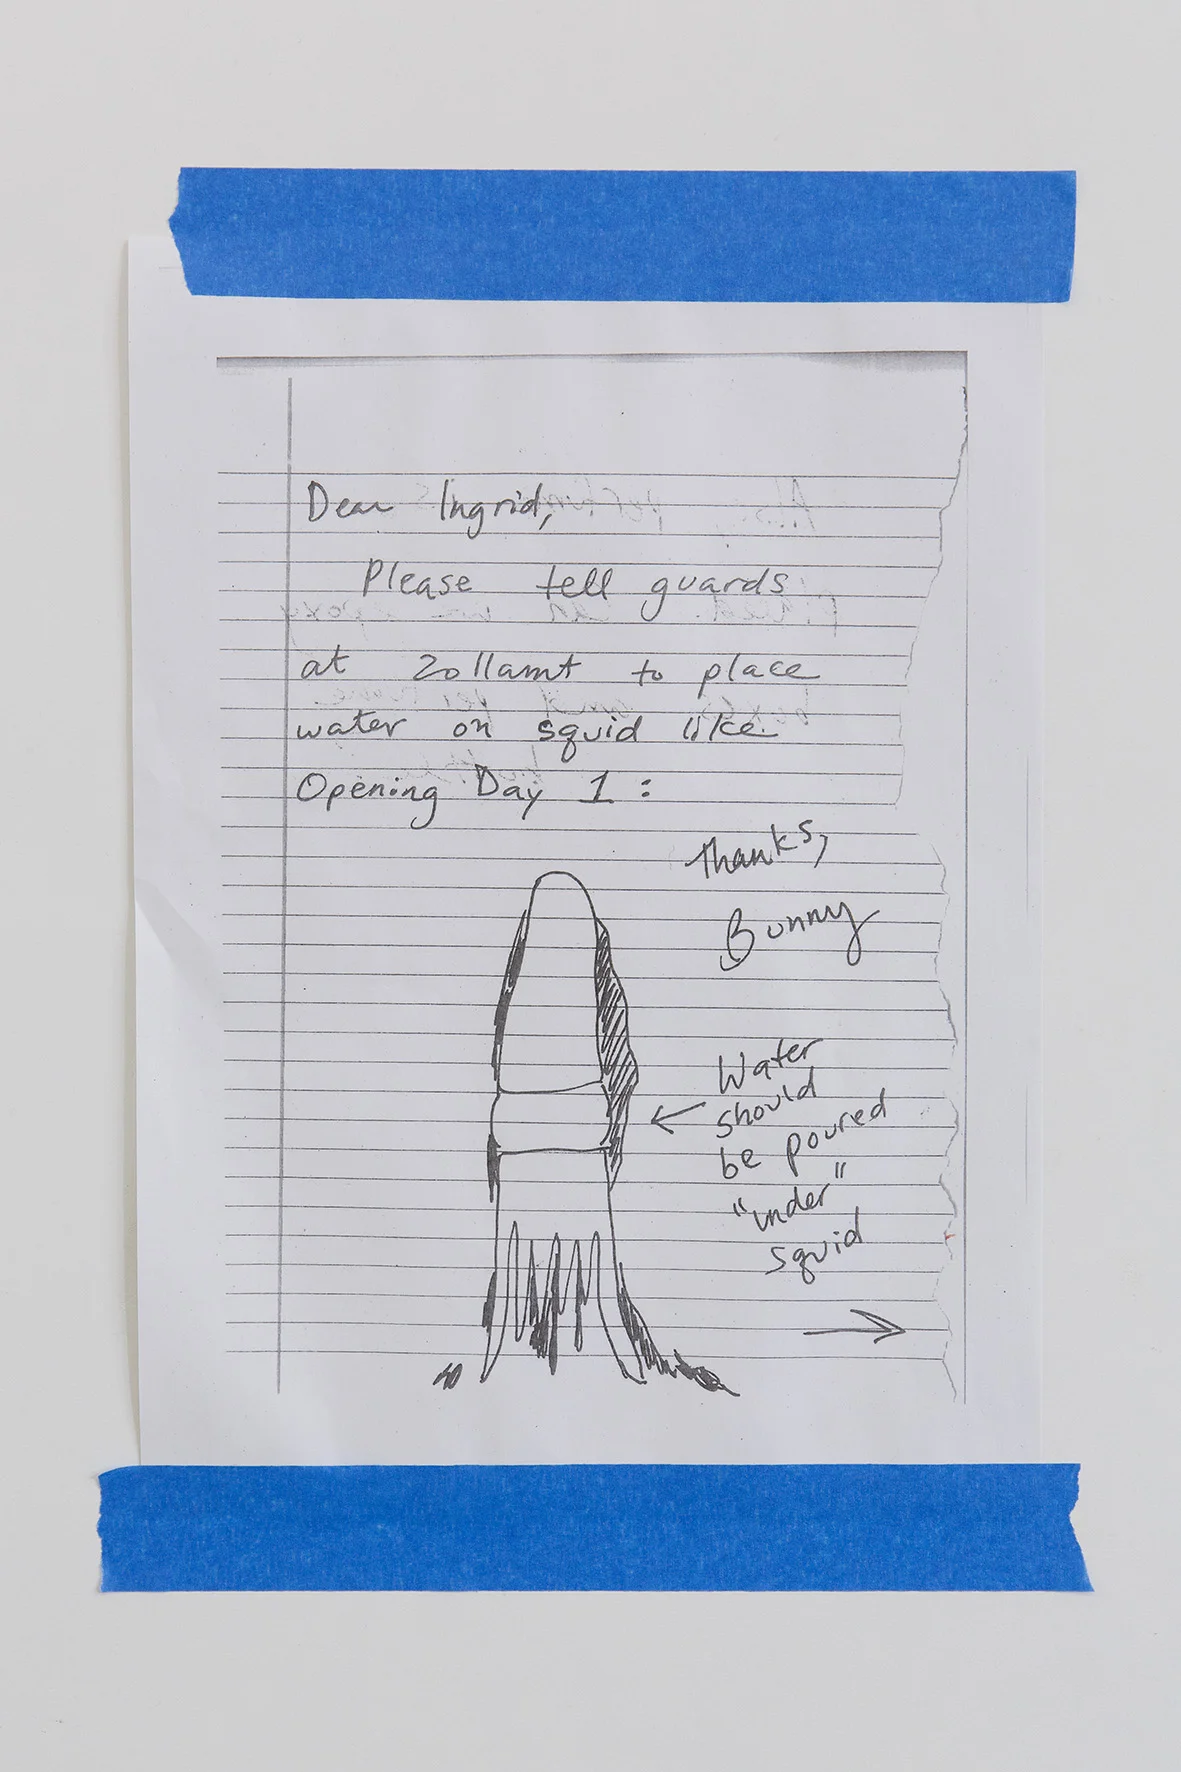 Dear Ingrid,
Please tell guards
at Zollamt to place
water on squid like
Opening Day 1:
Thanks,
Bunny
Water
should
be poured
"under"
squid